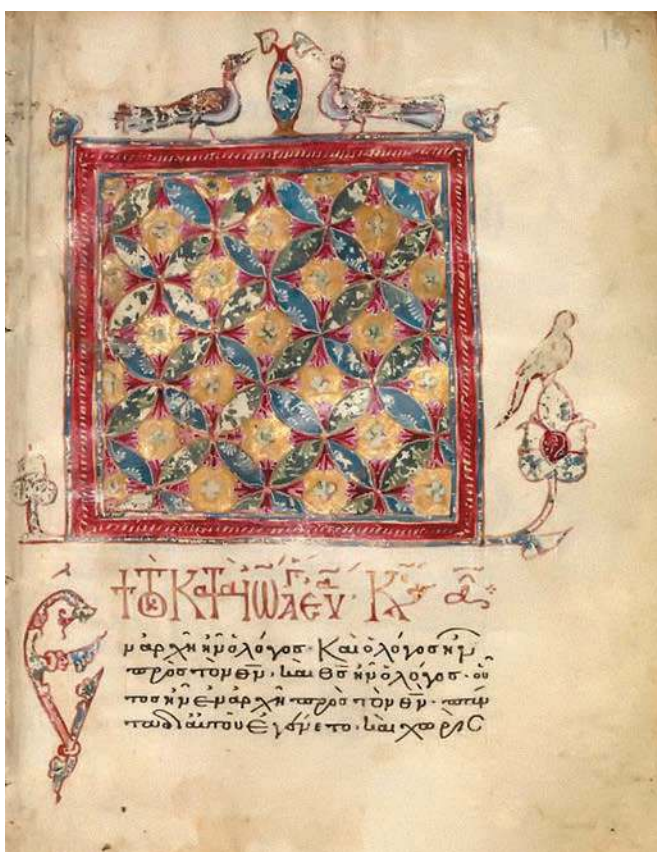 + Τὸ κατὰ Ἰω ἅγ εὐ· Κε α
ν ἀρχῆ ἦν ὁ λόγος· Καὶ ὁ λόγος ἦν
πρὸς τὸν θν, καὶ θς ἦν ὁ λόγος· οὗ
τος ἦν ἐν ἀρχῆ πρὸς τὸν θν· πάν
τα δι αὐτοῦ ἐγένετο, καὶ χωρὶς